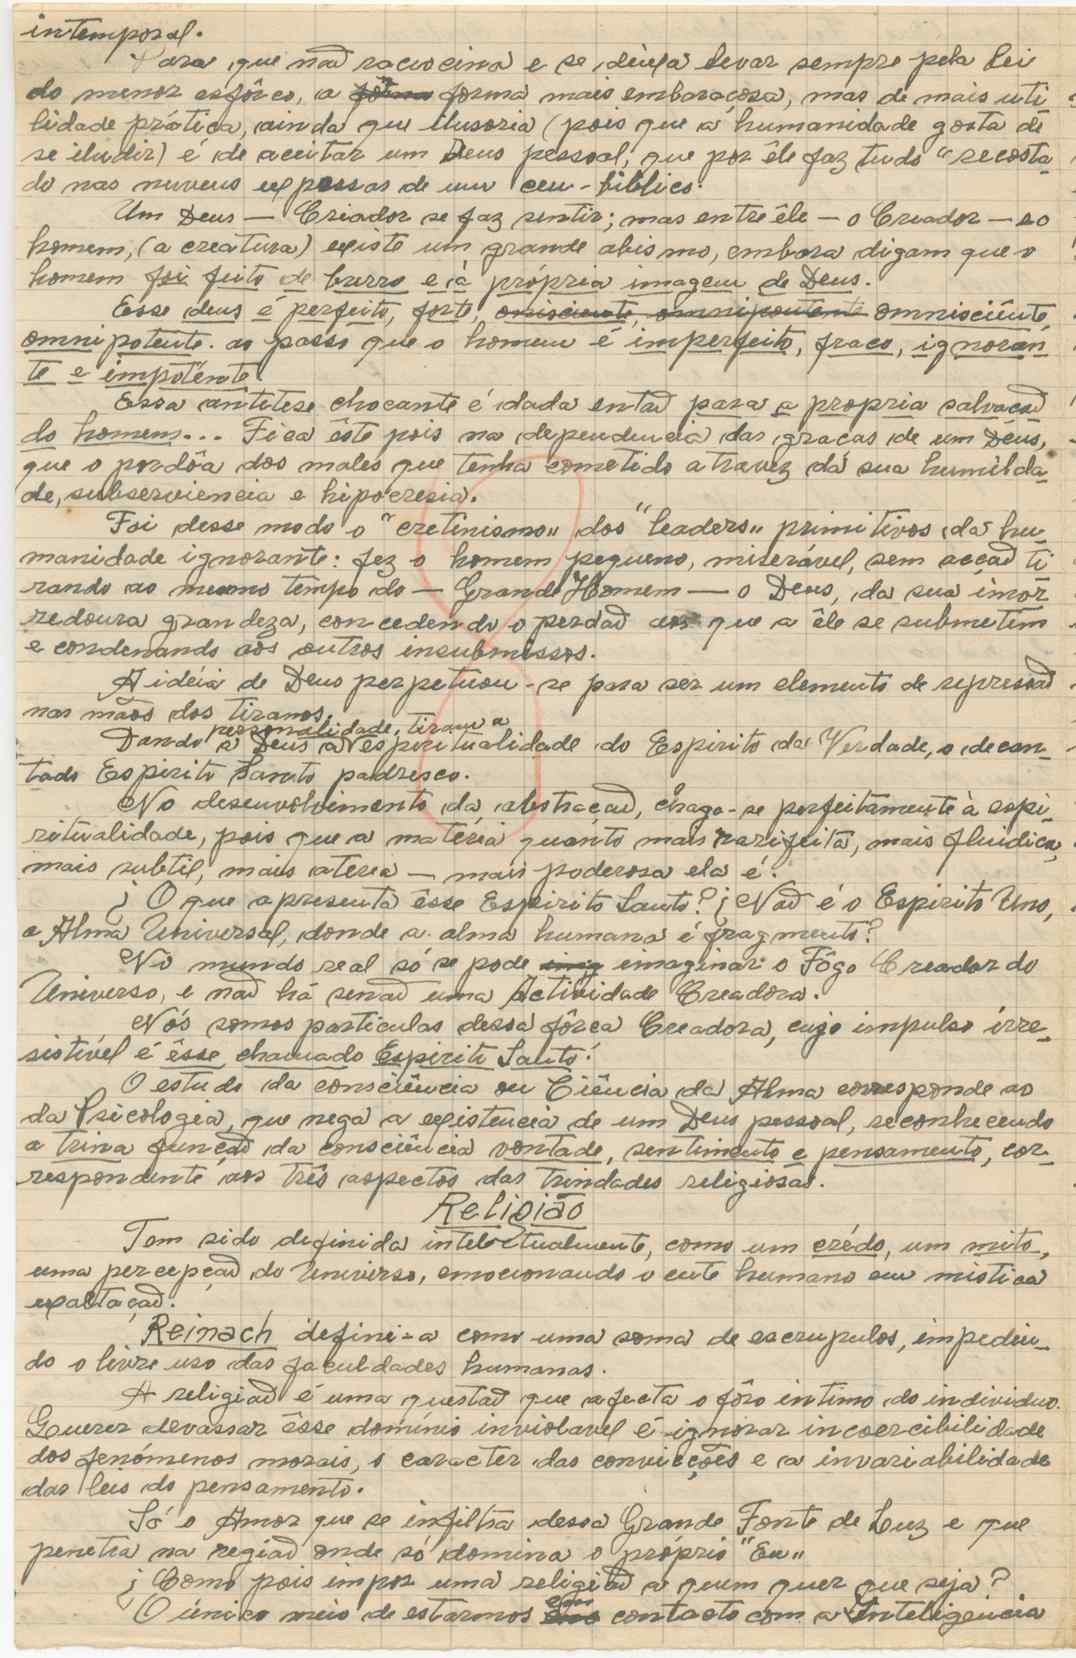 intemporal.
Para que não raciocina e se deixa levar sempre pela lei
do menor esfôrco, a forma mais embaraçosa, mas de mais uti
lidade prática, ainda que ilusoria (pois que a humanidade gosta de
se iludir) é de aceitar um Deus pessoal, que por êle faz tudo "recosta-
do nas nuveus expessas de um ceu-biblico.
Um Deus — Criador se faz sentir; mas entre êle — o Creador — e o
homem, (a creatura) existe um grande abismo, embora digam que o
homem foi feito de barro e á própria imagem de Deus.
Esse deus é perfeito, forte, omnisciente, omnipotente omnisciênte,
omnipotente. ao passo que o homem é imperfeito, fraco, ignoran
te e impotênte.
Essa antitese chocante é dada entaõ para a propria salvaçaõ
do homem... Fica êste pois na dependencia das graças de um Deus,
que o pordôa dos males que tenha cometido atravez da sua humilda-
de, subserviencia e hipocresia.
Foi desse modo o "cretinismo" dos "leaders" primitivos da hu-
manidade ignorante: fez o homem pequeno, miserável, sem acçaõ ti
rando ao mesmo tempo do — Grande Homem — o Deus, da sua imor
redoura grandeza, concedendo o perdaõ aos que a êle se submetem
e condenando aos outros insubmissos.
A idéia de Deus perpetuou-se para ser um elemento de repressaõ
nas mãos dos tiranos.
personalidade, tiram a
Dando a Deus a espiritualidade do Espirito da Verdade, o decan-
tado Espirito Santo padresco.
No desenvolvimento da abstracaõ, chaga-se perfeitamente à espi-
ritualidade, pois que a matéria quanto mais rarifeita, mais fluidica,
mais subtil, mais aterea — mais poderosa ela é.
¿ O que apresenta êsse Espirito Santo? ¿ Naõ é o Espirito Uno,
a Alma Universal, donde a alma humana é fragmento?
No mundo real só se pode imaginar o Fôgo Creador do
Universo, e naõ há senaõ uma Actividade Creadora.
Nós somos particulas dessa fôrca Creadora, cujo impulso irre-
sistível é êsse chamado Espirito Santo!
O estudo da consciência ou Ciência da Alma corresponde ao
da Psicologia, que nega a existencia de um Deus pessoal, reconhecendo
a trina funçaõ da consciência vontade, sentimento e pensamento, cor-
respondente aos três aspectos das trindades religiosas.
Religião
Tem sido definida intelectualmente, como um crédo, um mito,
uma percepçaõ do Universo, emocionando o ente humano em mistica
exaltaçaõ.
Reinach defini-a como uma soma de escrupulos, impedin-
do o livre uso das faculdades humanas.
A religiaõ é uma questaõ que afecta o fôro intimo do individuo.
Querer devassar êsse domínio inviolavel é ignorar incoercibilidade
dos fenómenos morais, o caracter das convicções e a invariabilidade
das leis do pensamento.
Só o Amor que se infiltra dessa Grande Fonte de Luz e que
penetra na regiaõ onde só domina o proprio "Eu"
¿ Como pois impor uma religiaõ a quem quer que seja?
O único meio de estarmos em contacto com a Inteligência